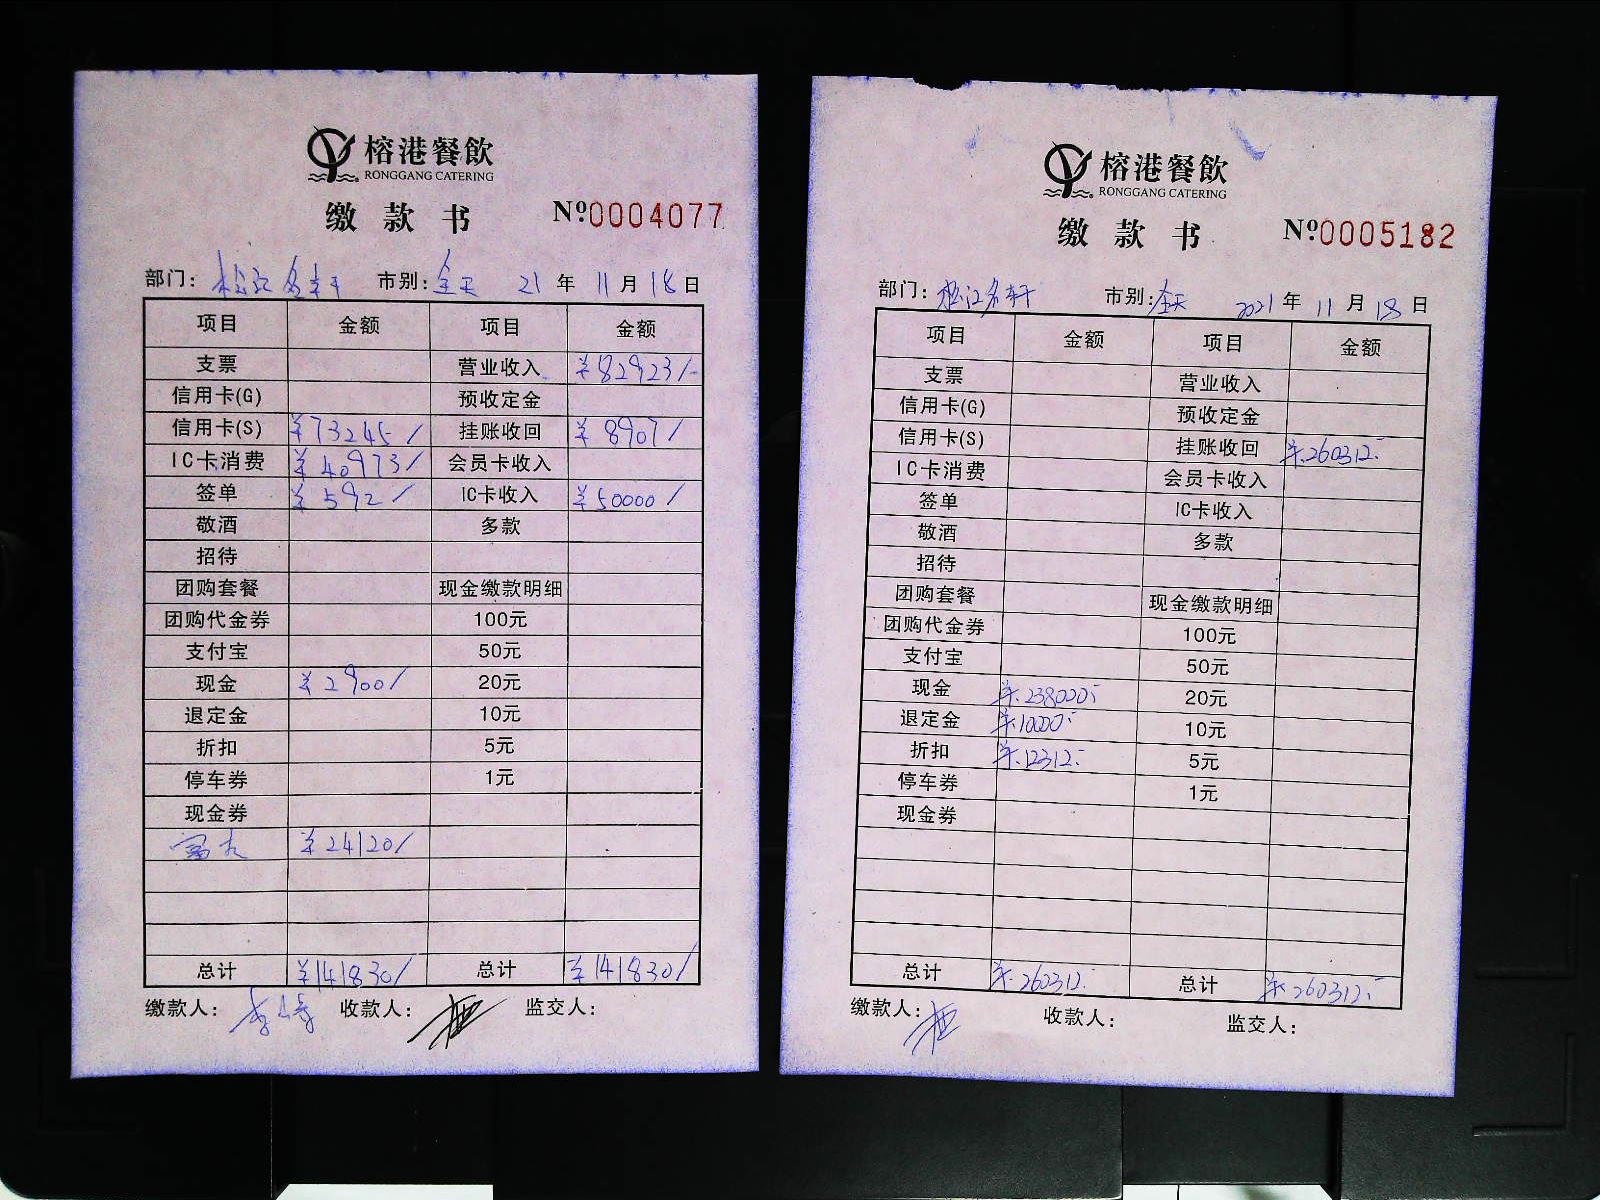 榕港餐飲
RONGGANG CATERING
缴款书 Nº0004077
部门: 松江名轩 市别: 全天 21年11月18日
项目 金额 项目 金额
支票 营业收入 ¥82923/-
信用卡(G) 预收定金
信用卡(S) ¥73245/ 挂账收回 ¥8907/
IC卡消费 ¥40973/ 会员卡收入
签单 ¥592/ IC卡收入 ¥50000/
敬酒 多款
招待
团购套餐 现金缴款明细
团购代金券 100元
支付宝 50元
现金 ¥2900/ 20元
退定金 10元
折扣 5元
停车券 1元
现金券
¥24120/
总计 ¥141830/ 总计 ¥141830/
缴款人: 收款人: 监交人:
榕港餐飲
RONGGANG CATERING
缴款书 Nº0005182
部门: 松江名轩 市别: 全天 2021年11月18日
项目 金额 项目 金额
支票 营业收入
信用卡(G) 预收定金
信用卡(S) 挂账收回 ¥260312-
IC卡消费 会员卡收入
签单 IC卡收入
敬酒 多款
招待
团购套餐 现金缴款明细
团购代金券 100元
支付宝 50元
现金 ¥238000- 20元
退定金 ¥10000- 10元
折扣 ¥12312- 5元
停车券 1元
现金券
总计 ¥260312- 总计 ¥260312-
缴款人: 收款人: 监交人: